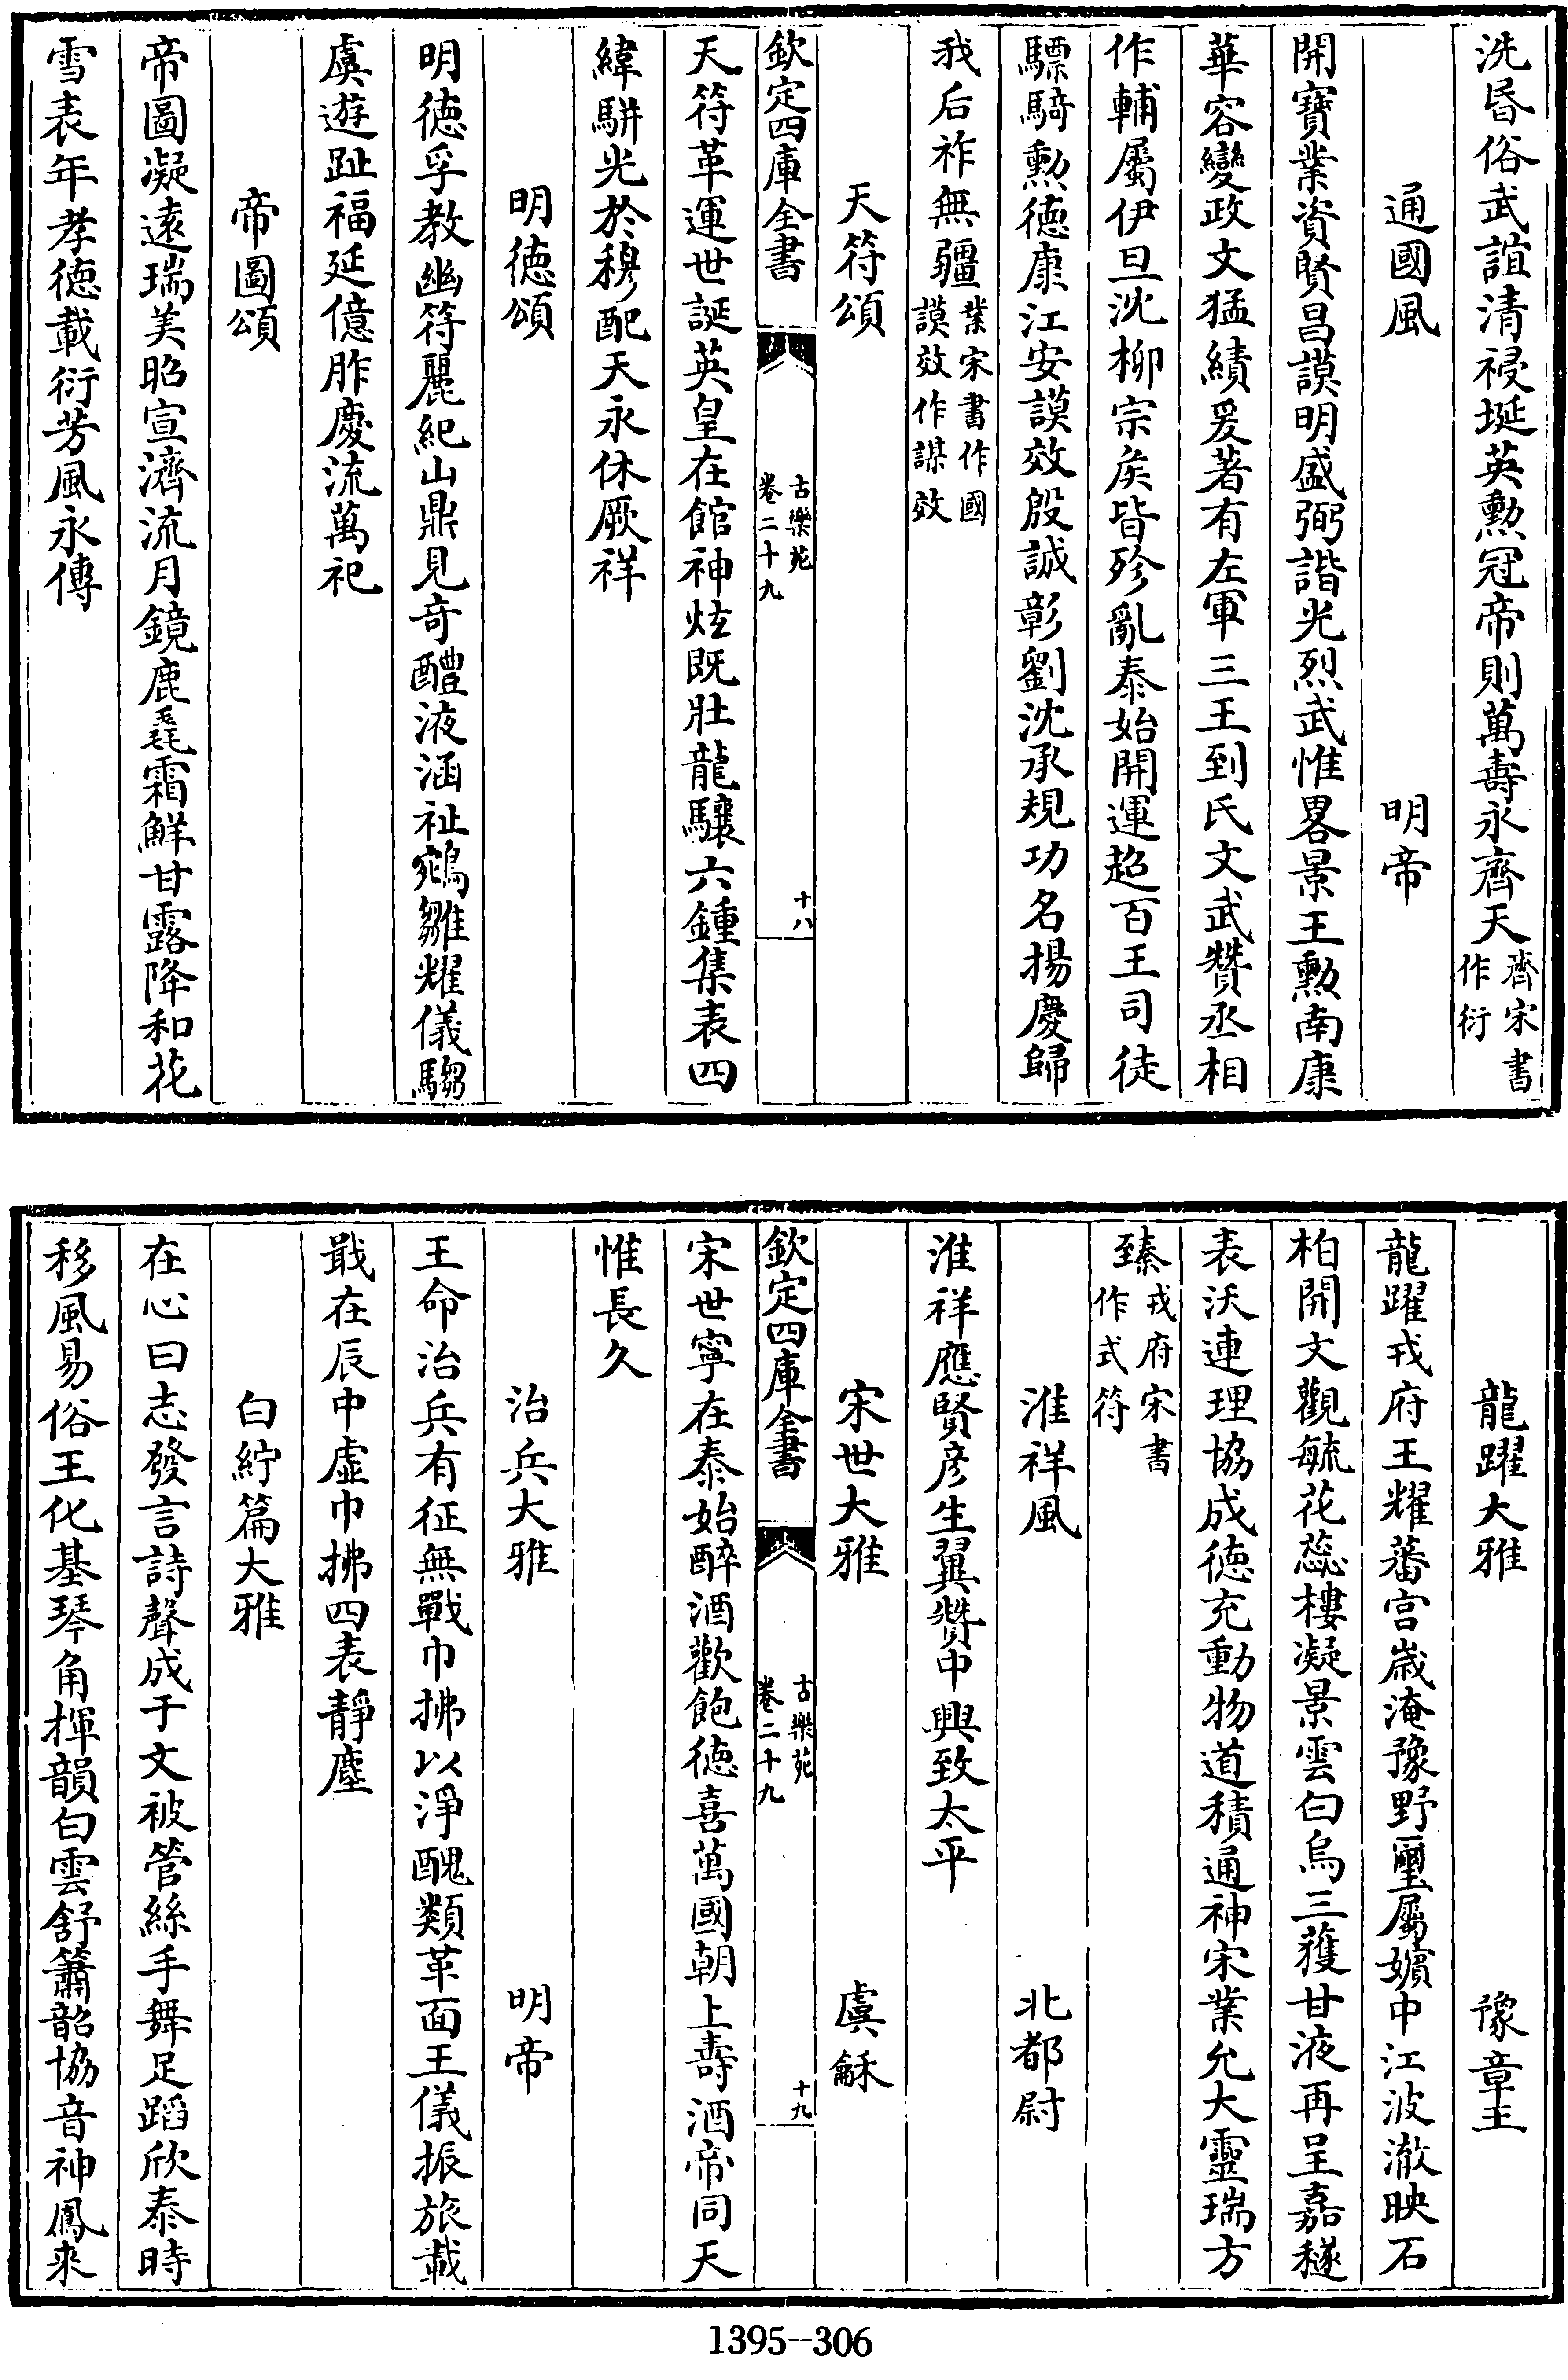 洗昏俗武誼清祲埏英勲冠帝則萬壽永齊天齊宋書作衍
通國風　明帝
開寶業資賢昌謨明盛弼諧光烈武惟畧景王勲南康
華容變政文猛績爰著有左軍三王到氏文武贊丞相
作輔屬伊旦沈柳宗矦皆殄亂泰始開運超百王司徒
驃騎勲徳康江安謨效殷誠彰劉沈承規功名揚慶歸
我后祚無疆業宋書作國謨效作謀效
天符頌
欽定四庫全書　古樂苑卷二十九　十八
天符革運世誕英皇在館神炫既壯龍驤六鍾集表四
緯駢光於穆配天永休厥祥
明徳頌
明徳孚教幽符麗紀山鼎見奇醴液涵祉鵷雛耀儀騶
虞遊趾福延億胙慶流萬祀
帝圖頌
帝圖凝逺瑞美昭宣濟流月鏡鹿毳霜鮮甘露降和花
雪表年孝徳載衍芳風永傳
龍躍大雅　豫章王
龍躍戎府王耀蕃宫歳淹豫野璽屬嬪中江波澈映石
柏開文觀毓花蕊樓凝景雲白烏三獲甘液再呈嘉穟
表沃連理協成徳充動物道積通神宋業允大靈瑞方
臻戎府宋書作式符
淮祥風　北都尉
淮祥應賢彦生翼贊中興致太平
宋世大雅　虞龢
欽定四庫全書　古樂苑卷二十九　十九
宋世寧在泰始醉酒歡飽徳喜萬國朝上壽酒帝同天
惟長久
治兵大雅　明帝
王命治兵有征無戰巾拂以淨醜類革面王儀振旅載
戢在辰中虚巾拂四表靜塵
白紵篇大雅
在心曰志發言詩聲成于文被管絲手舞足蹈欣泰時
移風易俗王化基琴角揮韻白雲舒簫韶協音神鳳來
1395--306